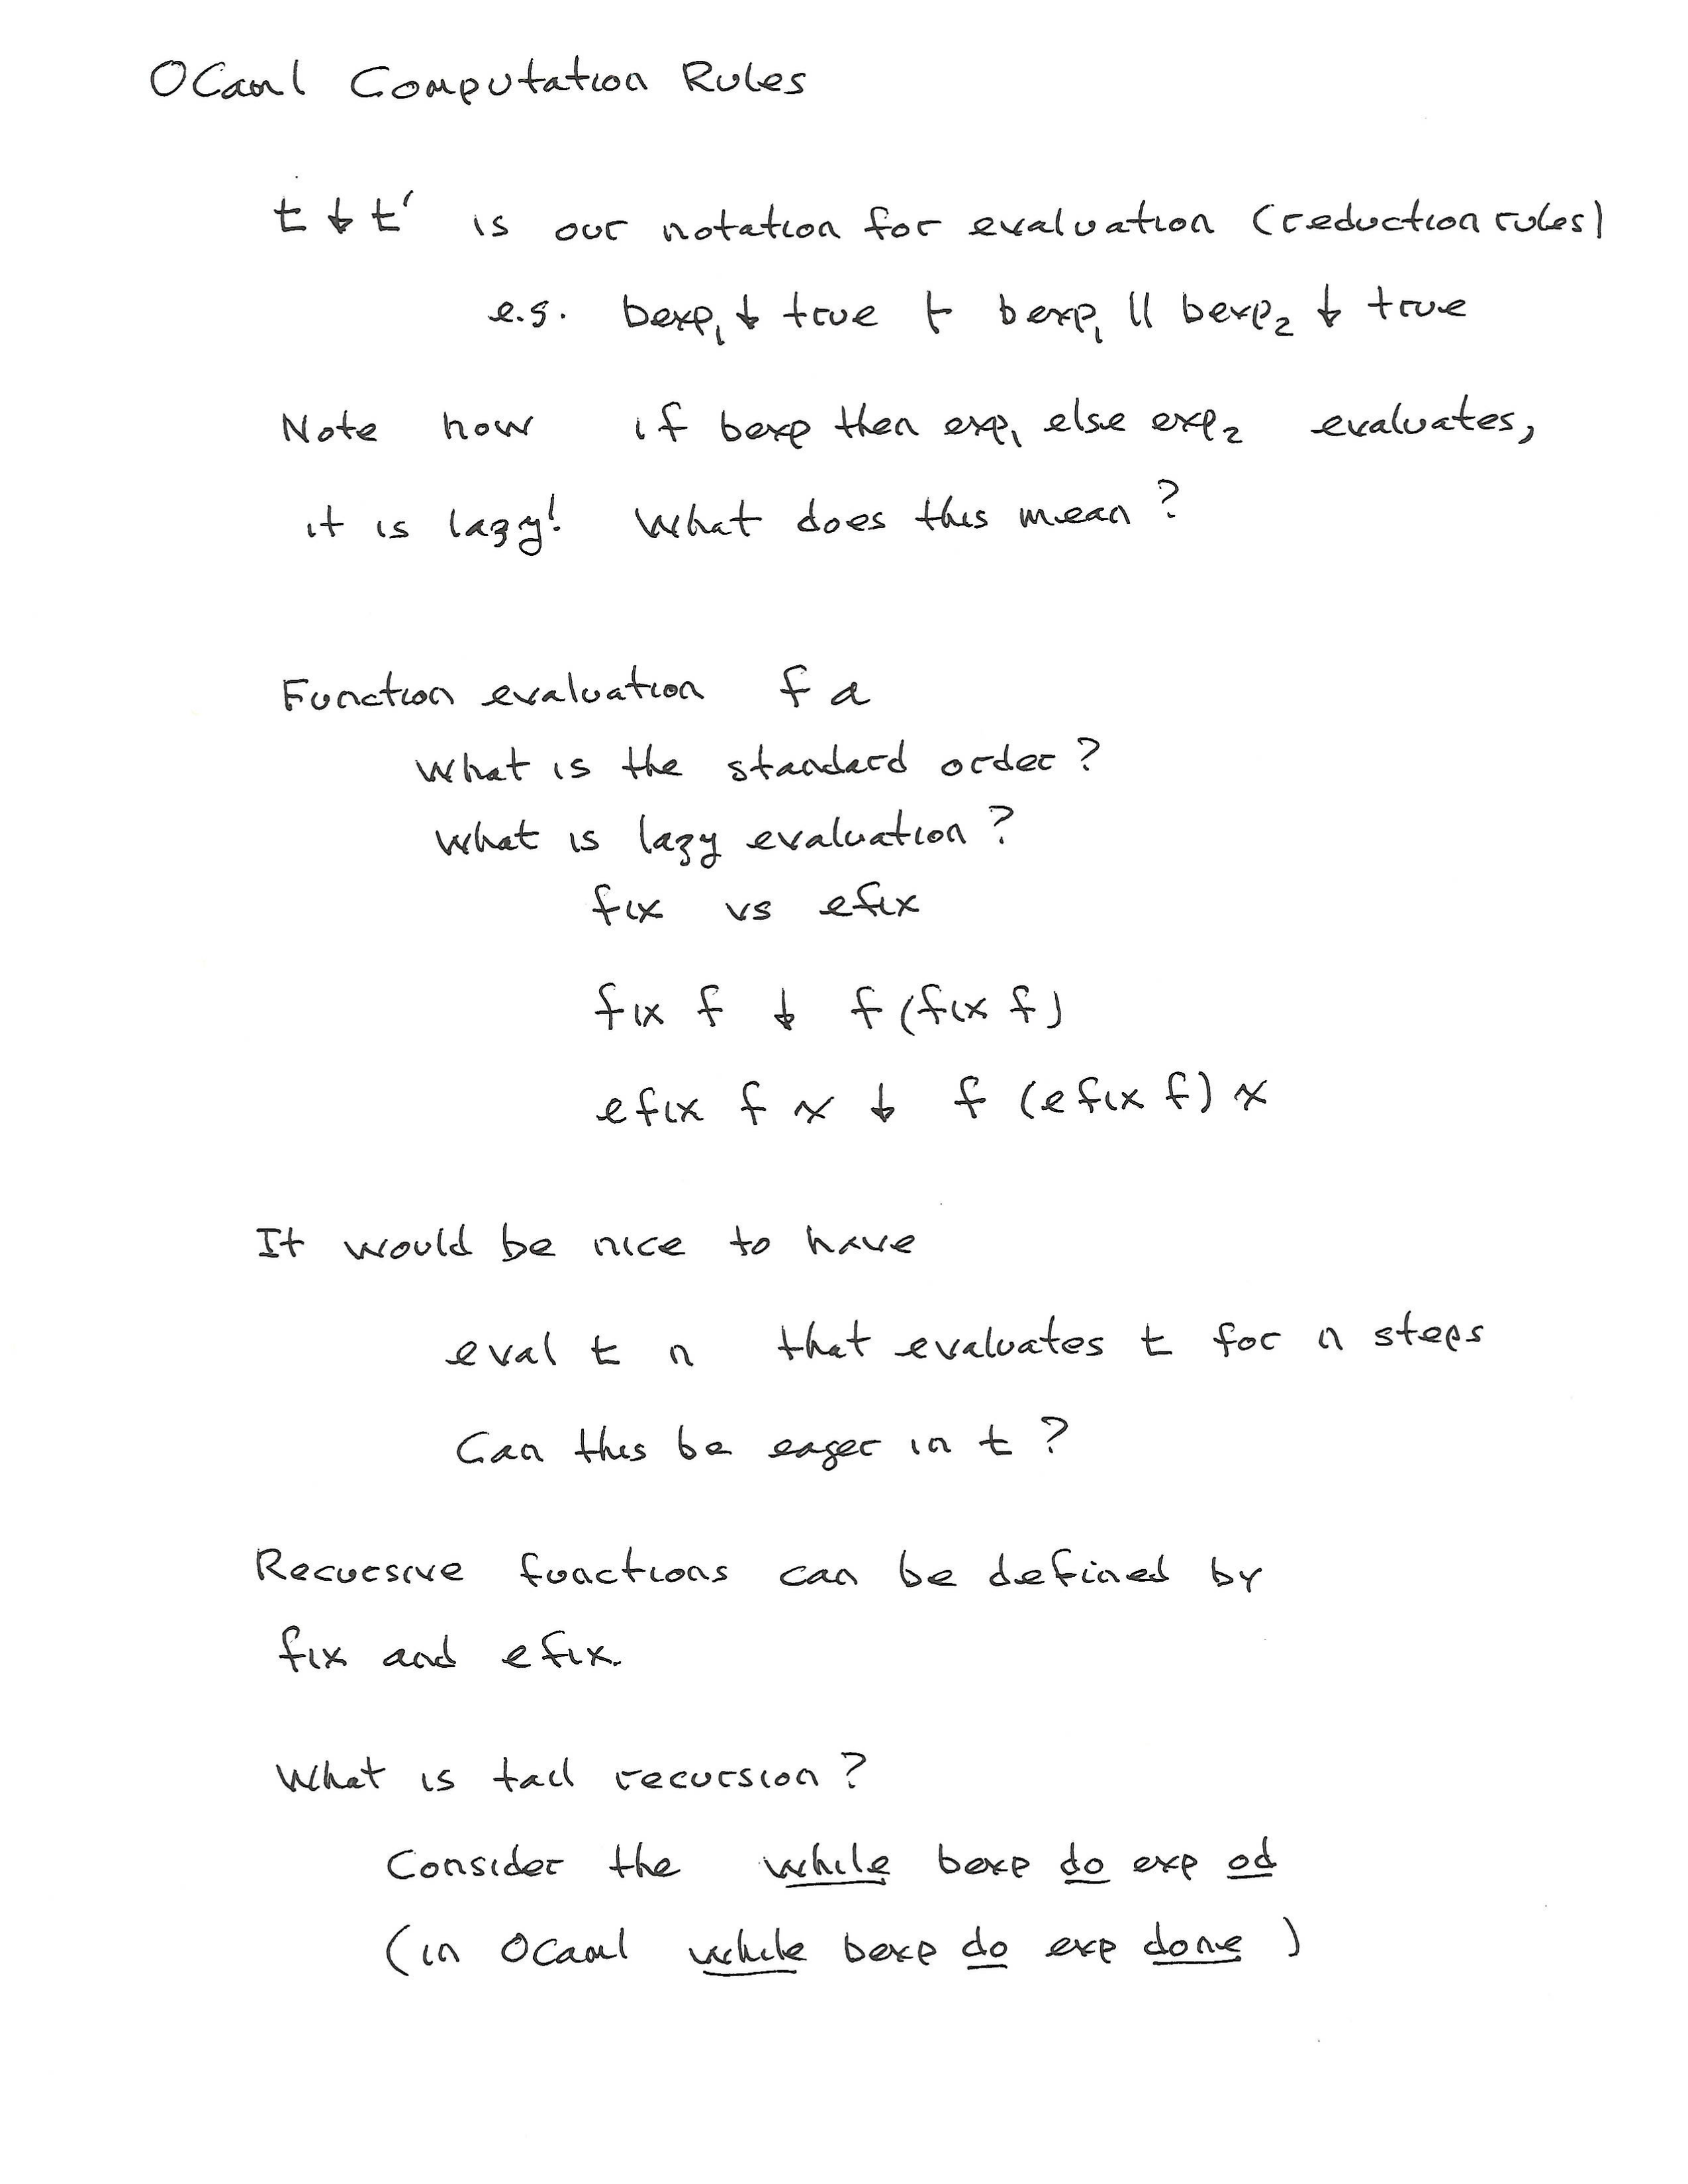 OCaml Computation Rules
t ↓ t' is our notation for evaluation (reduction rules)
e.g. bexp₁ ↓ true ⊢ bexp₁ || bexp₂ ↓ true
Note how if bexp then exp₁ else exp₂ evaluates,
it is lazy! What does this mean?
Function evaluation f a
What is the standard order?
What is lazy evaluation?
fix vs efix
fix f ↓ f (fix f)
efix f x ↓ f (efix f) x
It would be nice to have
eval t n that evaluates t for n steps
Can this be eager in t?
Recursive functions can be defined by
fix and efix.
What is tail recursion?
Consider the while bexp do exp od
(in OCaml while bexp do exp done)